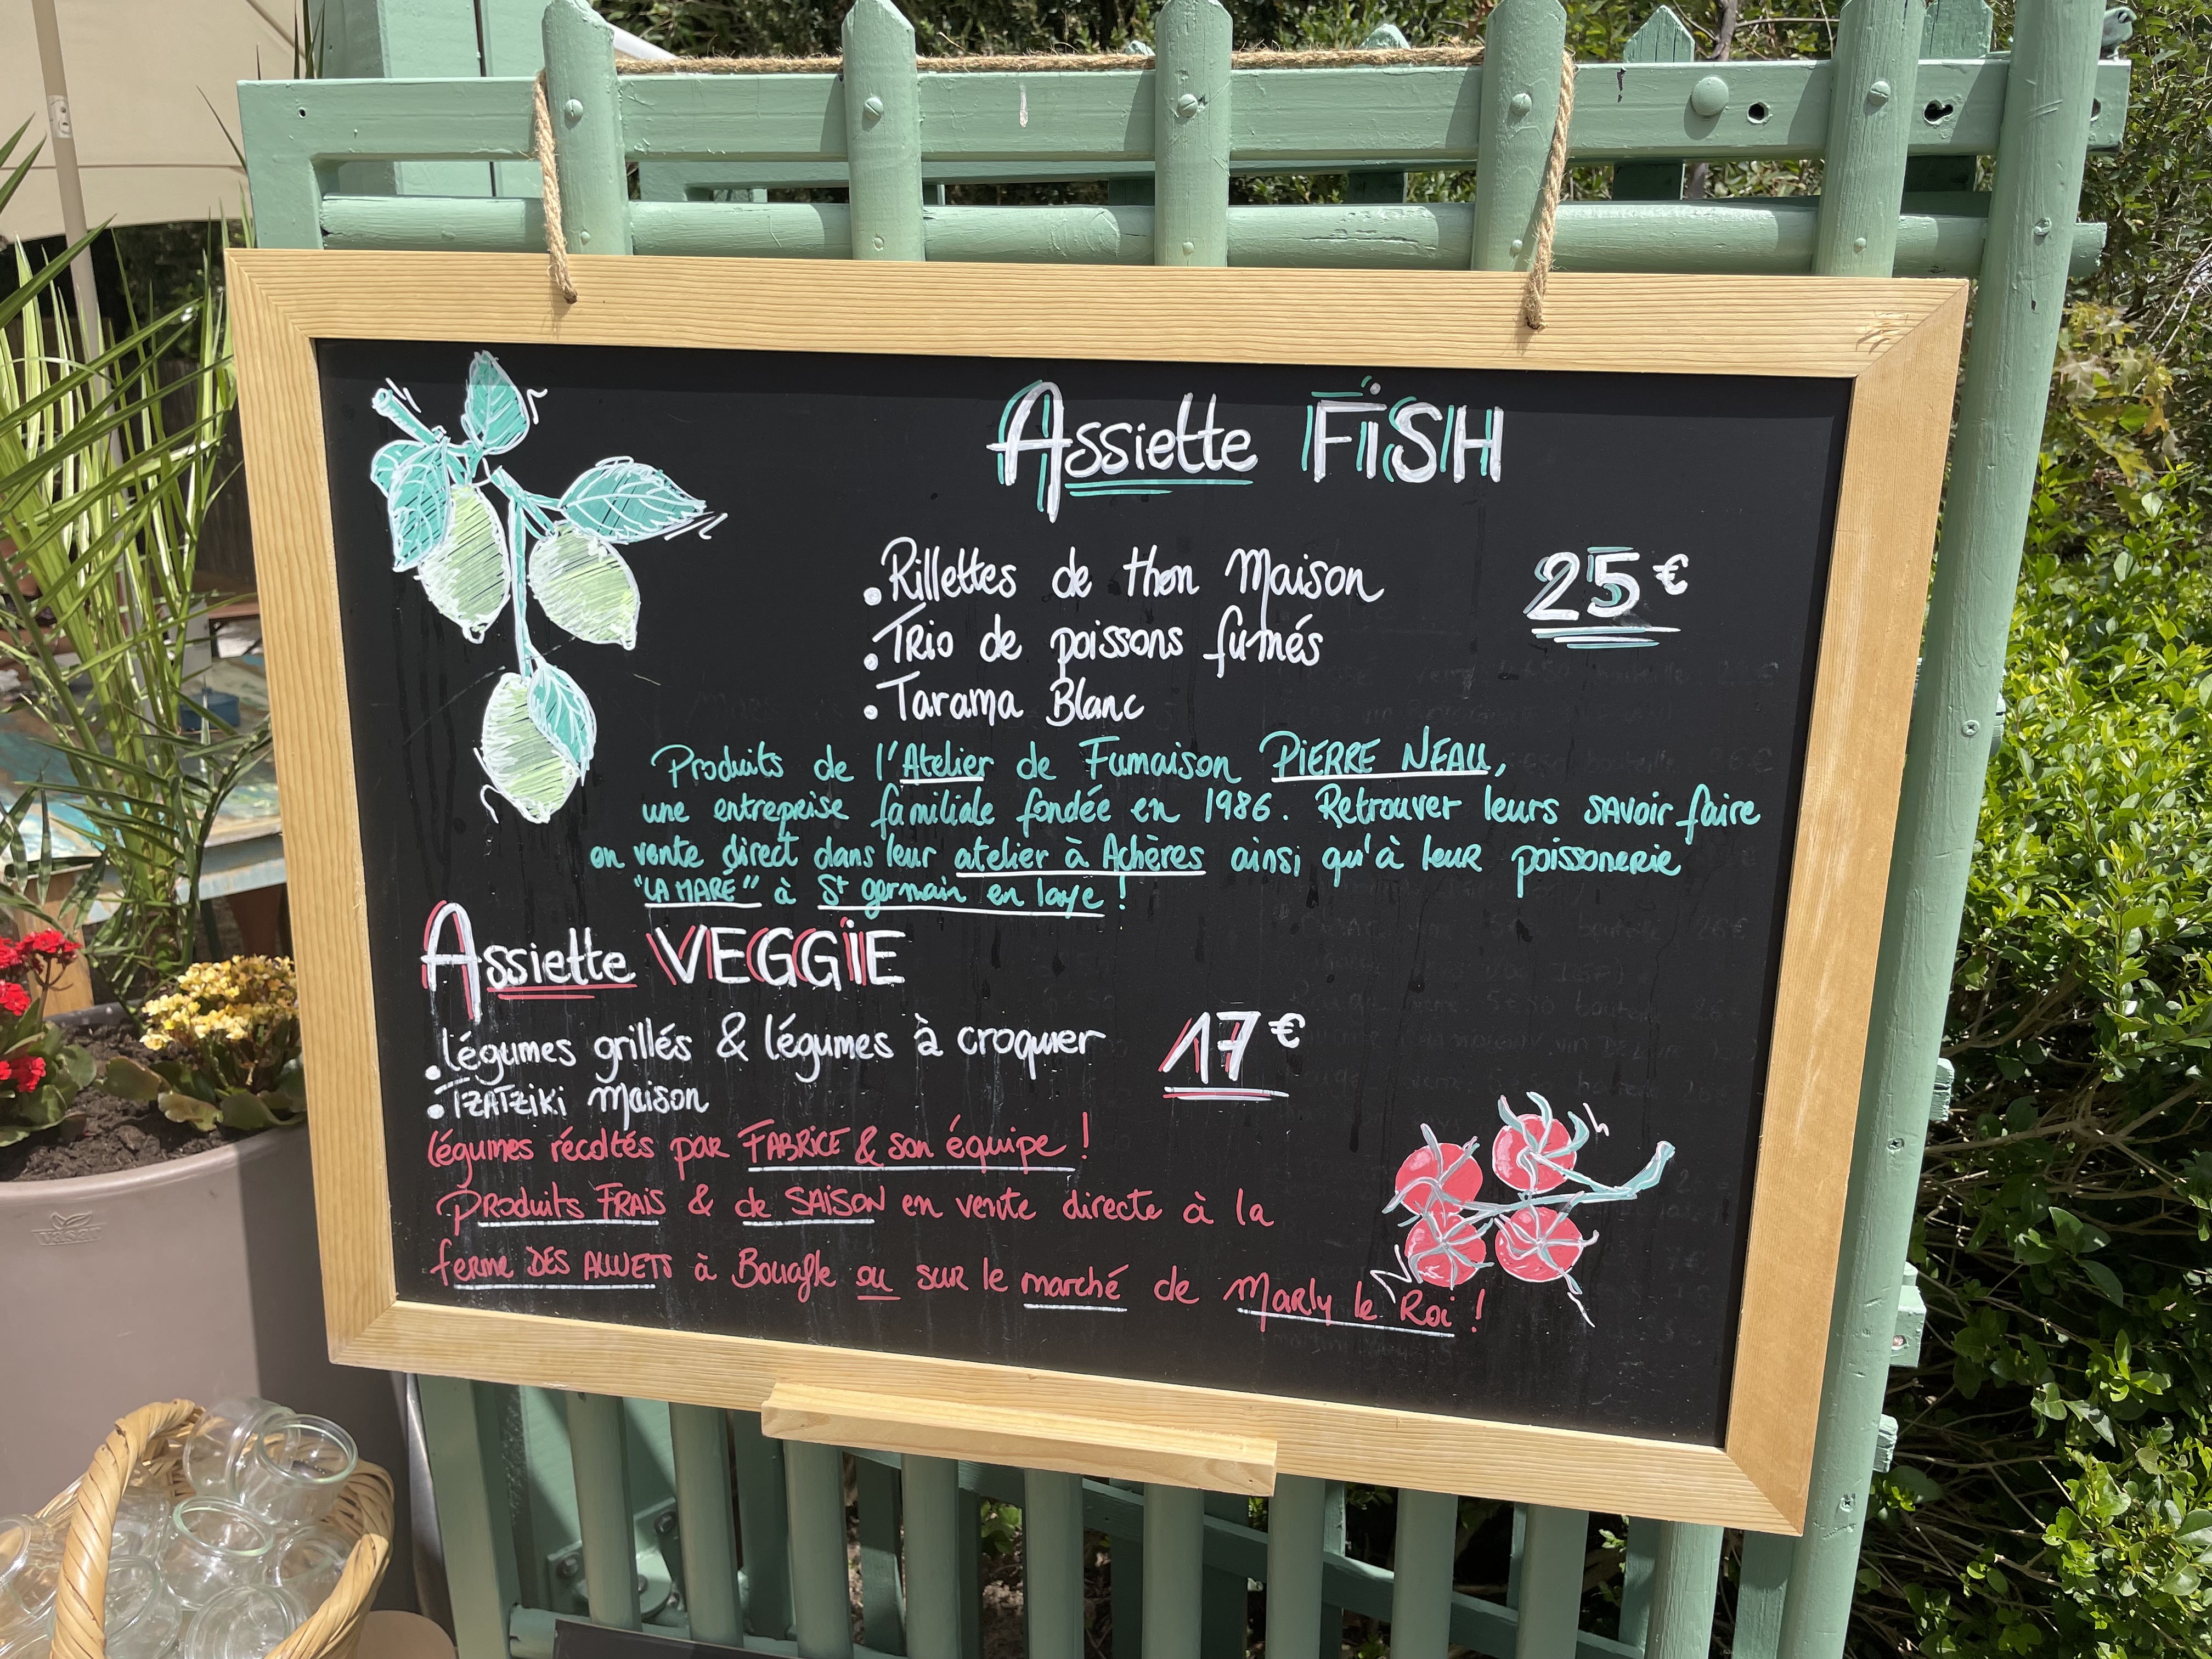 Assiette FiSH
• Rillettes de thon Maison
25€
• TRio de poissons fumés
• Tarama Blanc
Produits de l'Atelier de Fumaison PIERRE NEAU,
une entreprise familiale fondée en 1986. Retrouver leurs savoir faire
en vente direct dans leur atelier à Achères ainsi qu'à leur poissonerie
"LA MARÉ" à St germain en laye !
Assiette VEGGiE
• légumes grillés & légumes à croquer
17€
• TZATZiKi Maison
légumes récoltés par FABRICE & son équipe !
PRoduits FRAIS & de SAiSON en vente directe à la
ferme DES ALLUETS à Bouafle ou sur le marché de Marly le Roi !